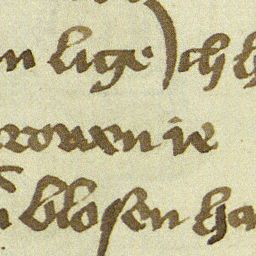 n lige ch h
rowen ie
n blosen ha